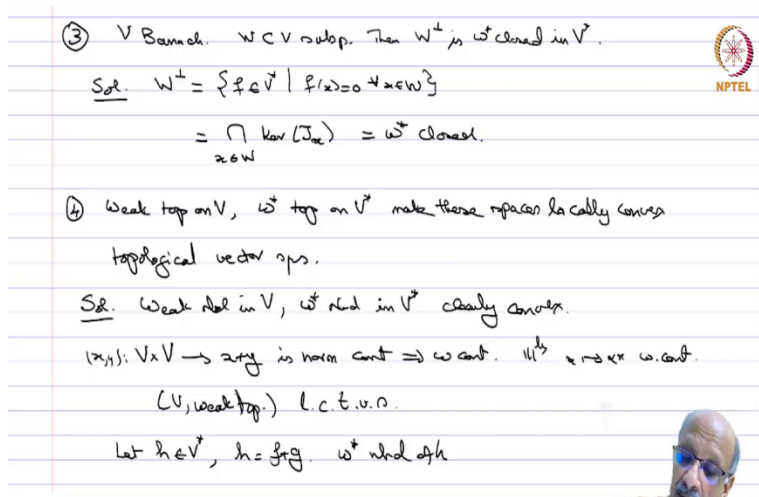 ③ V Banach. W ⊂ V subsp. Then W^⊥ is w* closed in V*.
Sol. W^⊥ = {f ∈ V* | f(x)=0 ∀ x∈W}
= ∩_{x∈W} Ker (J_x) = w* closed.
NPTEL
④ Weak top on V, w* top on V* make these spaces locally convex
topological vector sps.
Sol. Weak nbd in V, w* nbd in V* clearly convex.
(x,y): V×V → x+y is norm cont ⇒ w cont. |||ly x ↦ αx w.cont.
(V, weak top.) l.c.t.v.s.
Let h∈V*, h = f+g. w* nbd of h